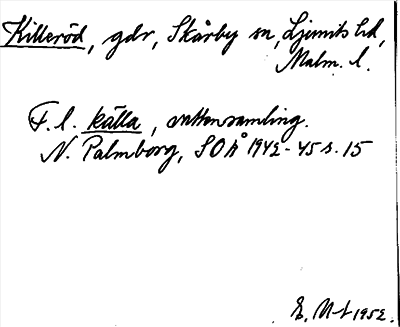 Killeröd, gdr, Skårby sn, Ljunits hd,
Malm. l.
F. l. källa, vattensamling.
N. Palmborg, SOÅ 1942-45 s. 15
E. M-t 1952.